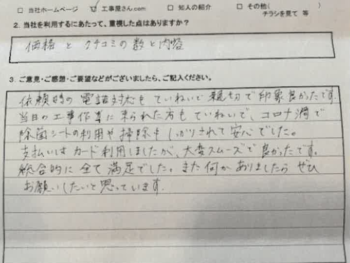 □ 当社ホームページ ☑ 工事屋さん.com □ 知人の紹介 □ その他(
チラシを見て 等
2. 当社を利用するにあたって、重視した点はありますか?
価格 と クチコミの数と内容
3. ご意見・ご感想・ご要望などがございましたら、ご記入ください。
依頼時の電話対応もていねいで親切で印象良かったです。
当日の工事作業に来られた方もていねいで、コロナ渦で
除菌シートの利用や掃除もしっかりされて安心でした。
支払いはカード利用しましたが、大変スムーズで良かったです。
総合的に全て満足でした。また何かありましたらぜひ
お願いしたいと思っています。